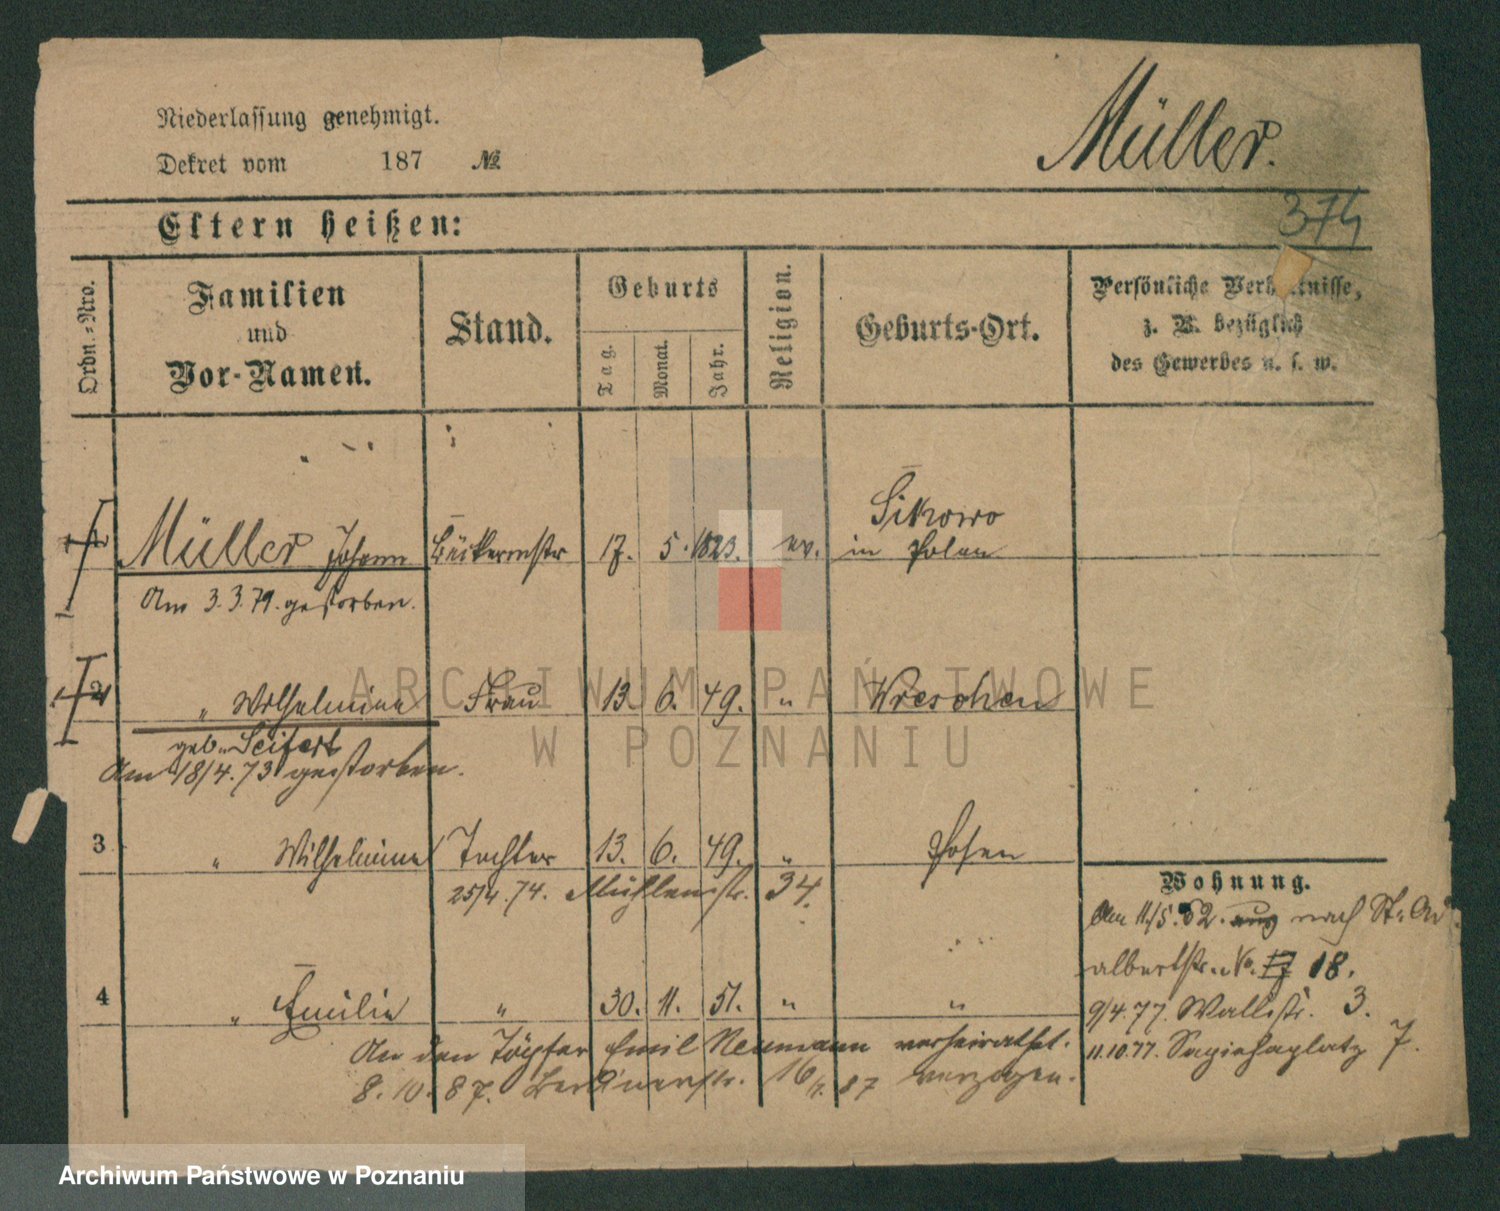 Müller.
Niederlassung genehmigt.
Dekret vom 187 №
374
Eltern heißen:
Ordn.-Nro.
Familien
und
Vor-Namen.
Stand.
Geburts
Tag.
Monat.
Jahr.
Religion.
Geburts-Ort.
Persönliche Verhältnisse,
z. B. bezüglich
des Gewerbes u. s. w.
1 Müller Johann Bäckermstr 17. 5. 1823. ev. Sikowo
in Polen
Am 3.3.79. gestorben.
2 " Wilhelmine Frau 13. 6. 49. " Wreschen
geb. Seifert
Am 18/4.73 gestorben.
3 " Wilhelmine Tochter 13. 6. 49. " Posen
25/4.74. Mühlenstr. 34.
4 " Emilie " 30. 11. 51. " "
An den Töpfer Emil Neumann verheirathet.
8.10.87. Berlinerstr. 16 87 verzogen.
Wohnung.
Am 11/5.62. aus nach St. Ad
albertstr. No. 17 18.
9/4.77. Wallstr. 3.
11.10.77. Sapiehaplatz 7.
ARCHIWUM PAŃSTWOWE
W POZNANIU
Archiwum Państwowe w Poznaniu